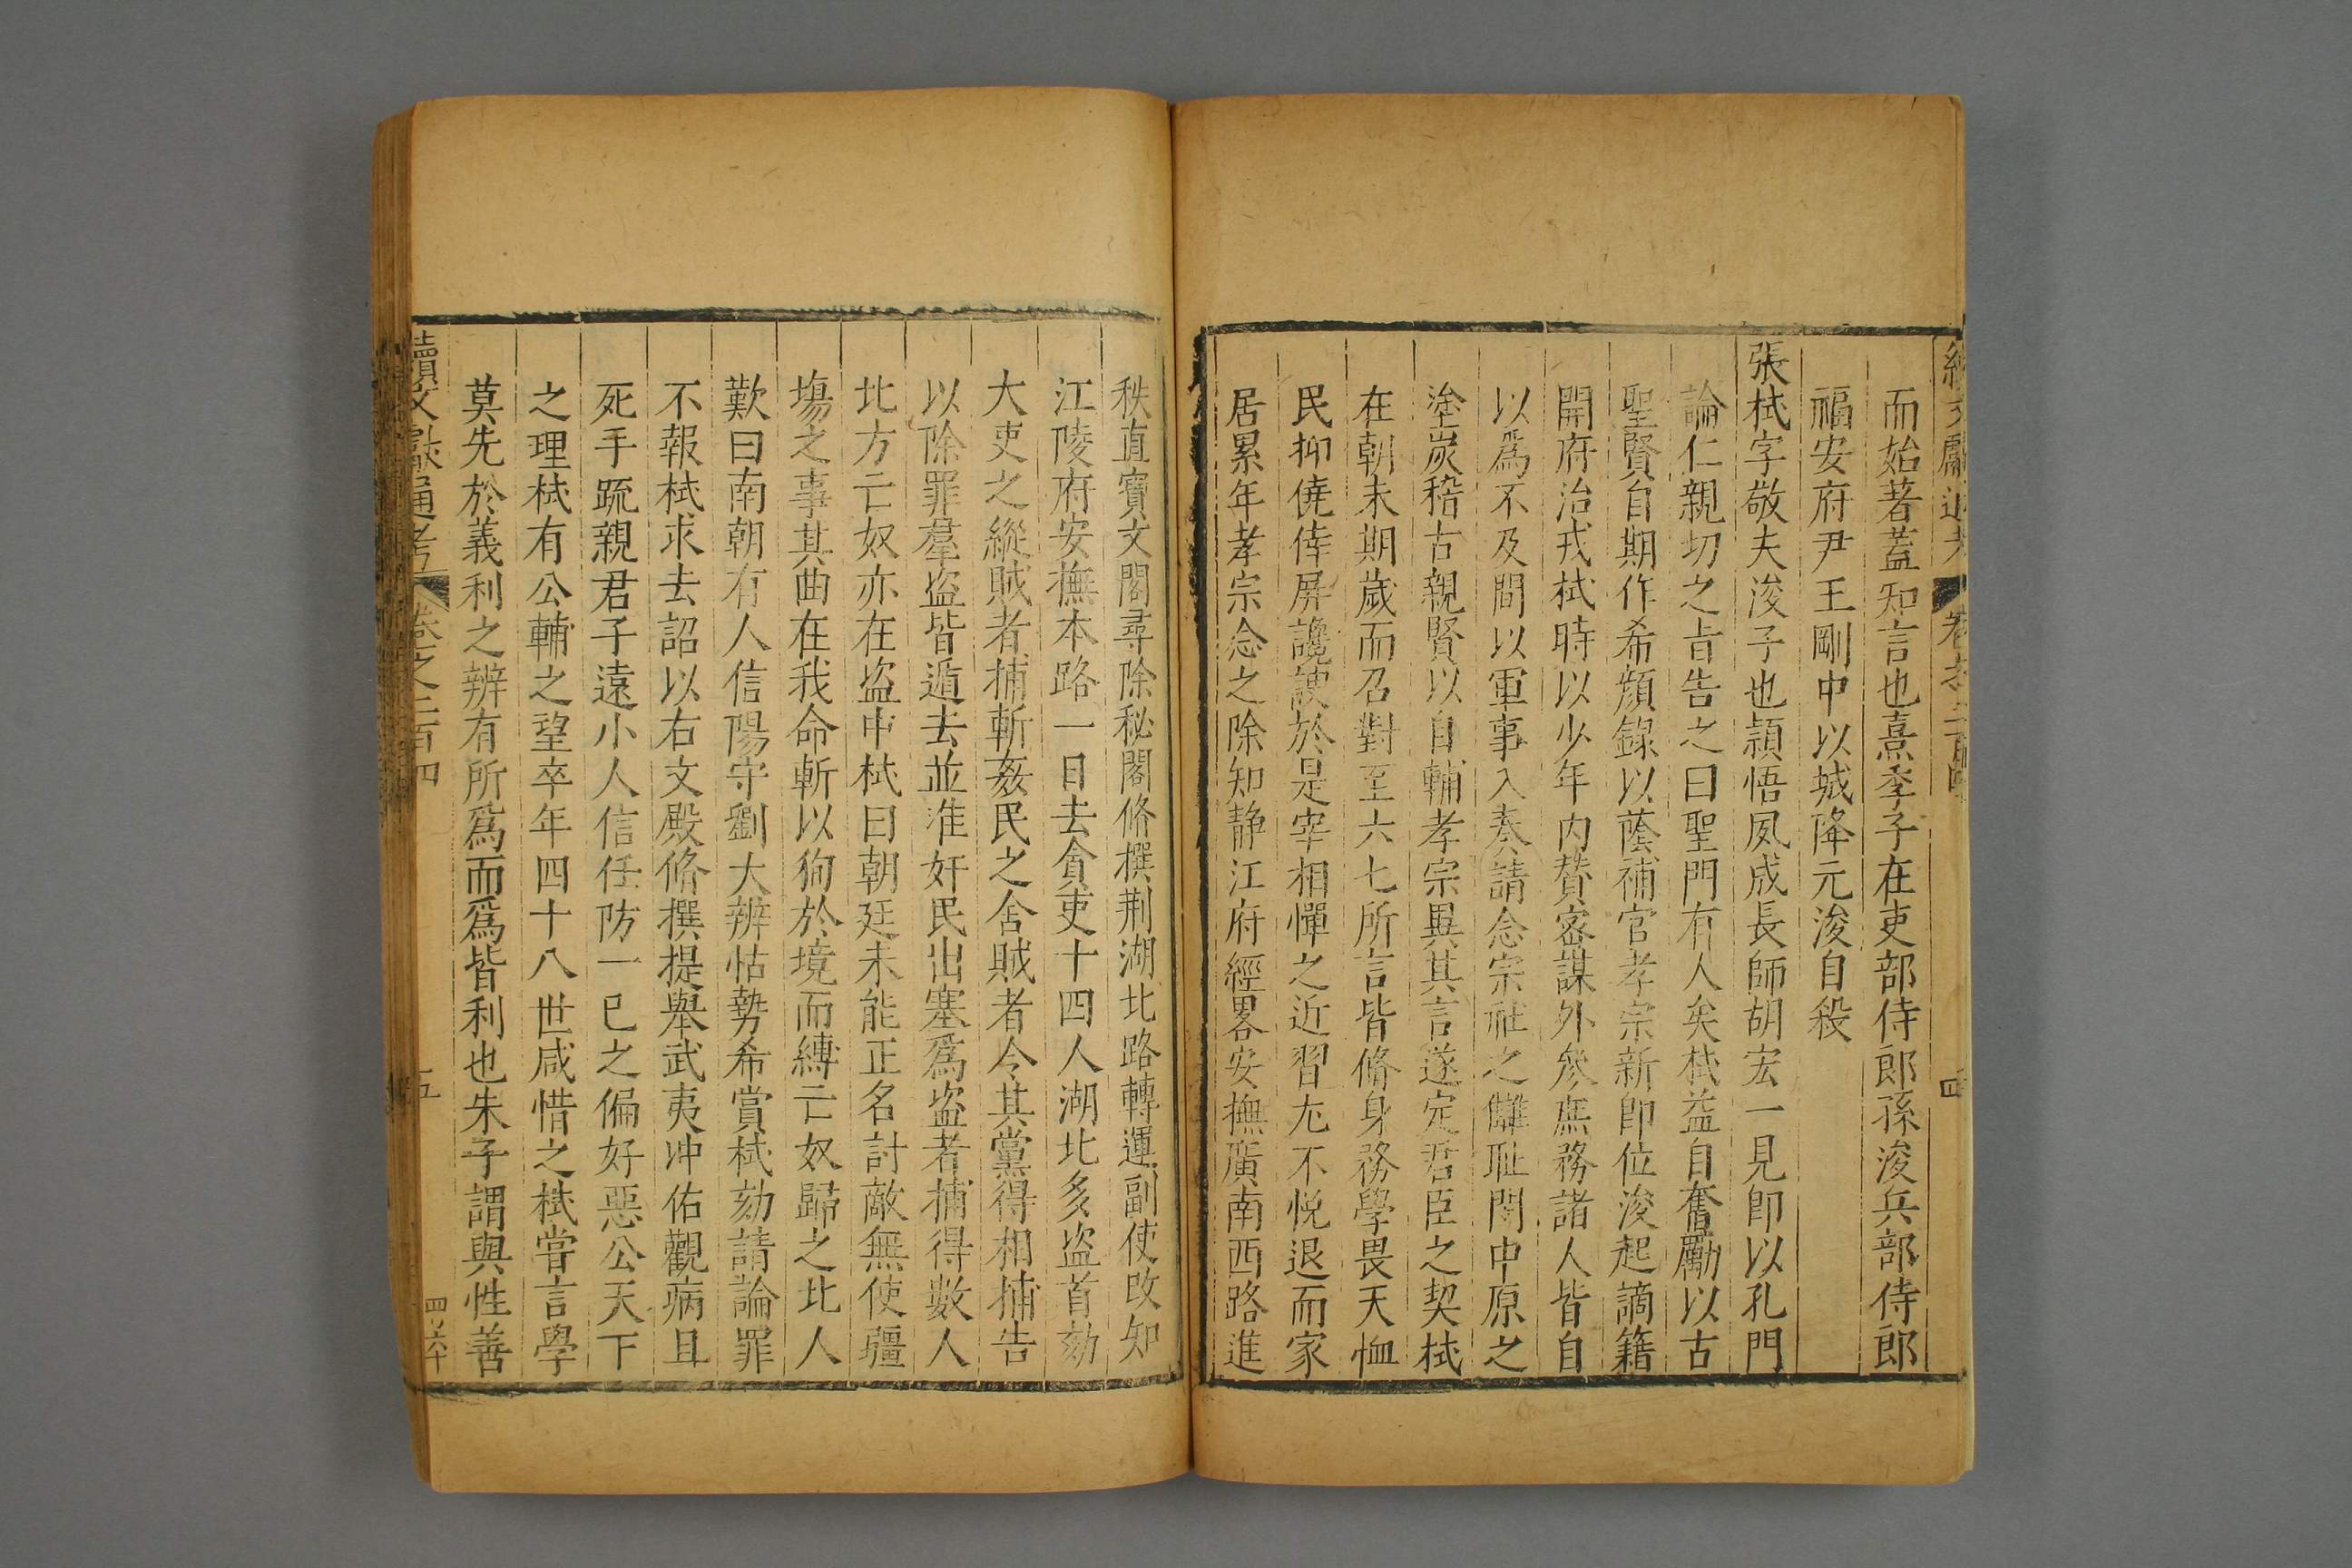 而始著蓋知言也熹季子在吏部侍郎孫浚兵部侍郎
福安府尹王剛中以城降元浚自殺
張栻字敬夫浚子也頴悟夙成長師胡宏一見即以孔門
論仁親切之旨告之曰聖門有人矣栻益自奮勵以古
聖賢自期作希顔錄以蔭補官孝宗新即位浚起謫籍
開府治戎栻時以少年内賛密謀外參庶務諸人皆自
以爲不及間以軍事入奏請念宗社之讎耻閔中原之
塗炭稽古親賢以自輔孝宗異其言遂定君臣之契栻
在朝未期歲而召對至六七所言皆脩身務學畏天恤
民抑僥倖屏讒諛於是宰相憚之近習尤不悅退而家
居累年孝宗念之除知静江府經畧安撫廣南西路進
秩直寶文閣尋除秘閣脩撰荆湖北路轉運副使改知
江陵府安撫本路一日去貪吏十四人湖北多盜首劾
大吏之縱賊者捕斬姦民之舍賊者令其黨得相捕告
以除罪羣盜皆遁去並淮奸民出塞爲盜者捕得數人
北方亡奴亦在盜中栻曰朝廷未能正名討敵無使疆
塲之事其曲在我命斬以狥於境而縛亡奴歸之北人
歎曰南朝有人信陽守劉大辨怙勢希賞栻劾請論罪
不報栻求去詔以右文殿脩撰提舉武夷冲佑觀病且
死手疏親君子遠小人信任防一已之偏好惡公天下
之理栻有公輔之望卒年四十八世咸惜之栻嘗言學
莫先於義利之辨有所爲而爲皆利也朱子謂與性善
續文獻通考 卷之二百四 五